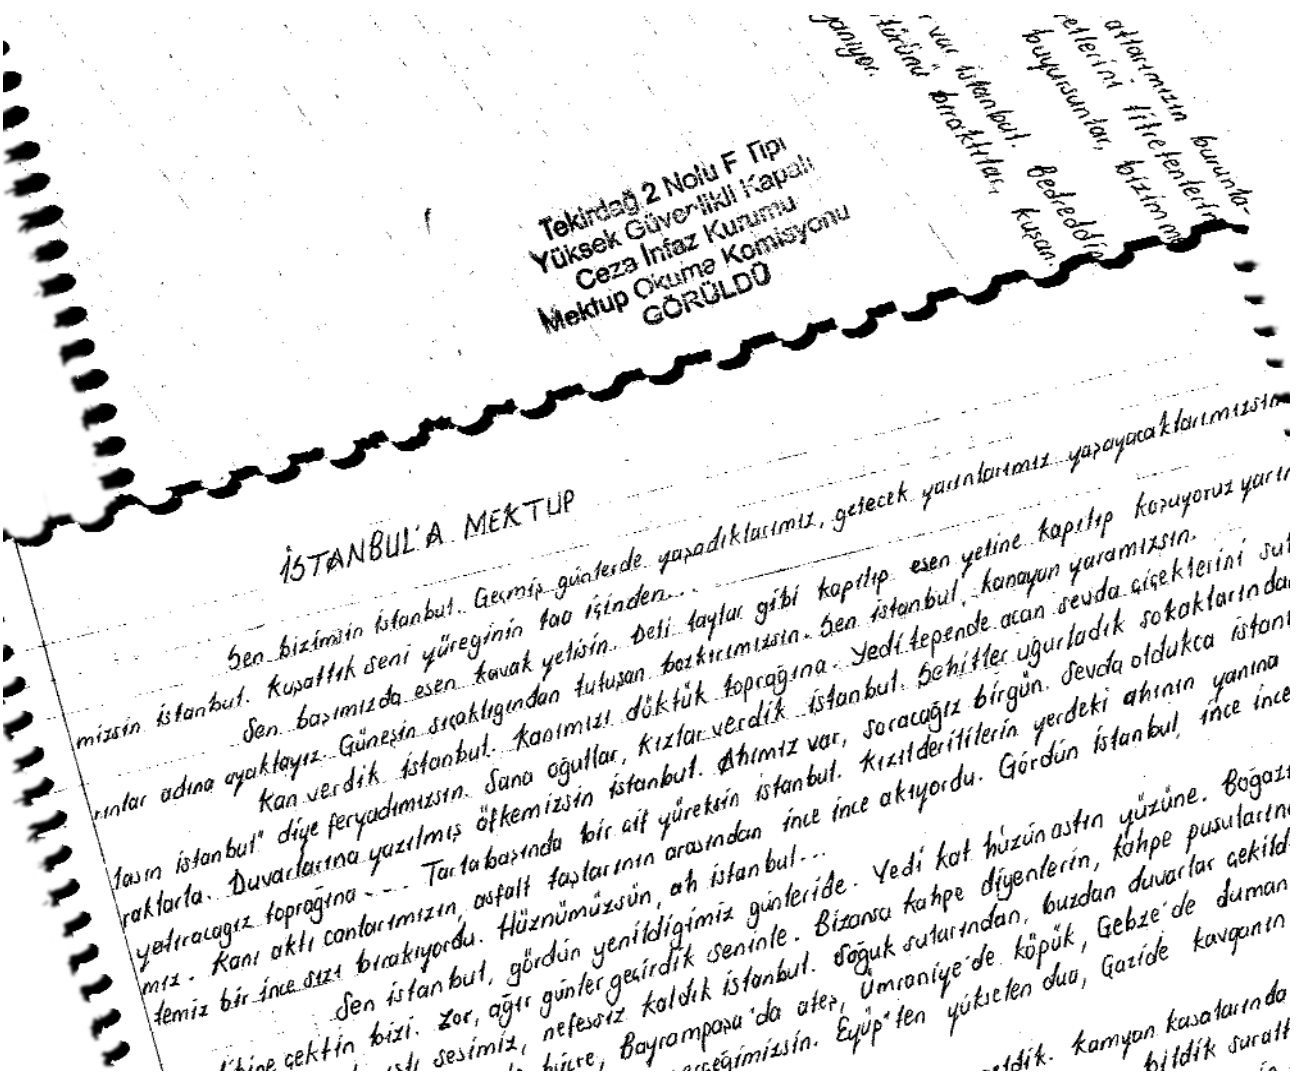 yanıyor.
türünü bıraktılar, kuşan.
var İstanbul. Bedreddin
buyursunlar, bizimm
retlerini titretenlerin
atlarımızın burunla-
Tekirdağ 2 Nolu F Tipi
Yüksek Güvenlikli Kapalı
Ceza İnfaz Kurumu
Mektup Okuma Komisyonu
GÖRÜLDÜ
İSTANBUL'A MEKTUP
Sen bizimsin İstanbul. Geçmiş günlerde yaşadıklarımız, gelecek yarınlarımız yaşayacaklarımızsın
mizsin İstanbul. Kuşattık seni yüreğinin tao içinden...
Sen başımızda esen kavak yelisin. Deli taylar gibi kapılıp esen yeline kapılıp koşuyoruz yarın
rınlar adına ayaktayız. Güneşin sıcaklığından tutuşan bozkırımızsın. Sen İstanbul, kanayan yaramızsın.
Kan verdik İstanbul. Kanımızı döktük toprağına. Yedi tepende açan sevda çiçeklerini sul
lasın İstanbul" diye feryadımızsın. Sana oğullar, kızlar verdik İstanbul. Şehitler uğurladık sokaklarından
raklarla. Duvarlarına yazılmış öfkemizsin İstanbul. Ahımız var, soracağız birgün. Sevda oldukca İstan
yatıracağız toprağına.... Tarlabaşında bir ait yüreksin İstanbul. Kızılderililerin yerdeki ahının yanına
mız. Kanı aktı canlarımızın, asfalt taşlarının arasından ince ince akıyordu. Gördün İstanbul, ince ince
temiz bir ince sızı bırakıyordu. Hüznümüzsün, ah İstanbul...
Sen İstanbul, gördün yenildiğimiz günleride. Yedi kat hüzün astın yüzüne. Boğazı
çektin bizi. Zor, ağır günler geçirdik seninle. Bizansa kahpe diyenlerin, kahpe pusularına
sesimiz, nefessiz kaldık İstanbul. Soğuk sularından, buzdan duvarlar çekild
hücre, Bayrampaşa'da ateş, Ümraniye'de köpük, Gebze'de duman
Eyüp'ten yükselen dua, Gazide kavganın
geldik. Kamyon kasalarında
bildik surat